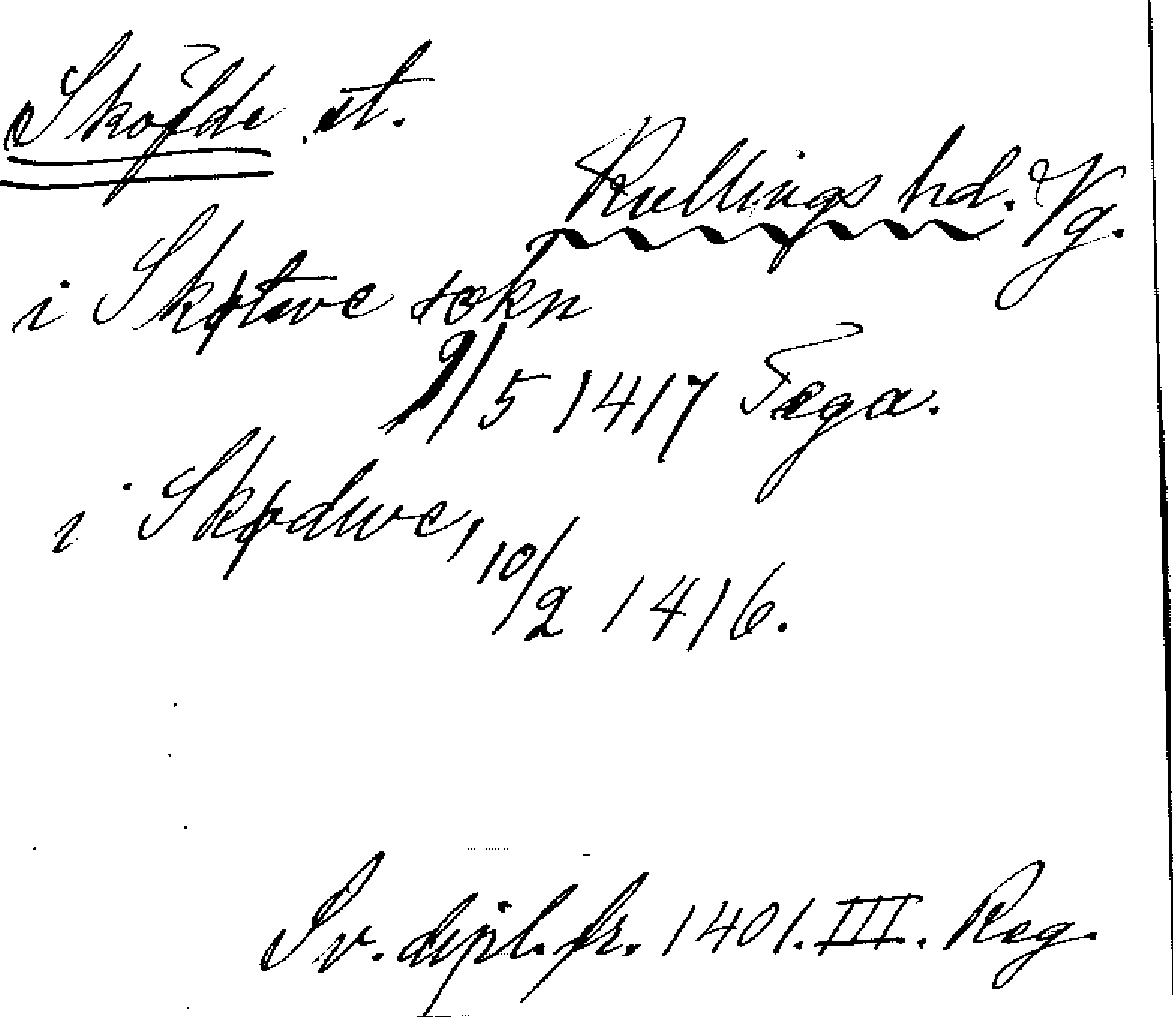 Sköfde st.
Kullings hd. Vg.
i Skøtwe sokn
9/5 1417 Fega.
i Skødwe, 10/2 1416.
Sv. dipl. fr. 1401. III. Reg.